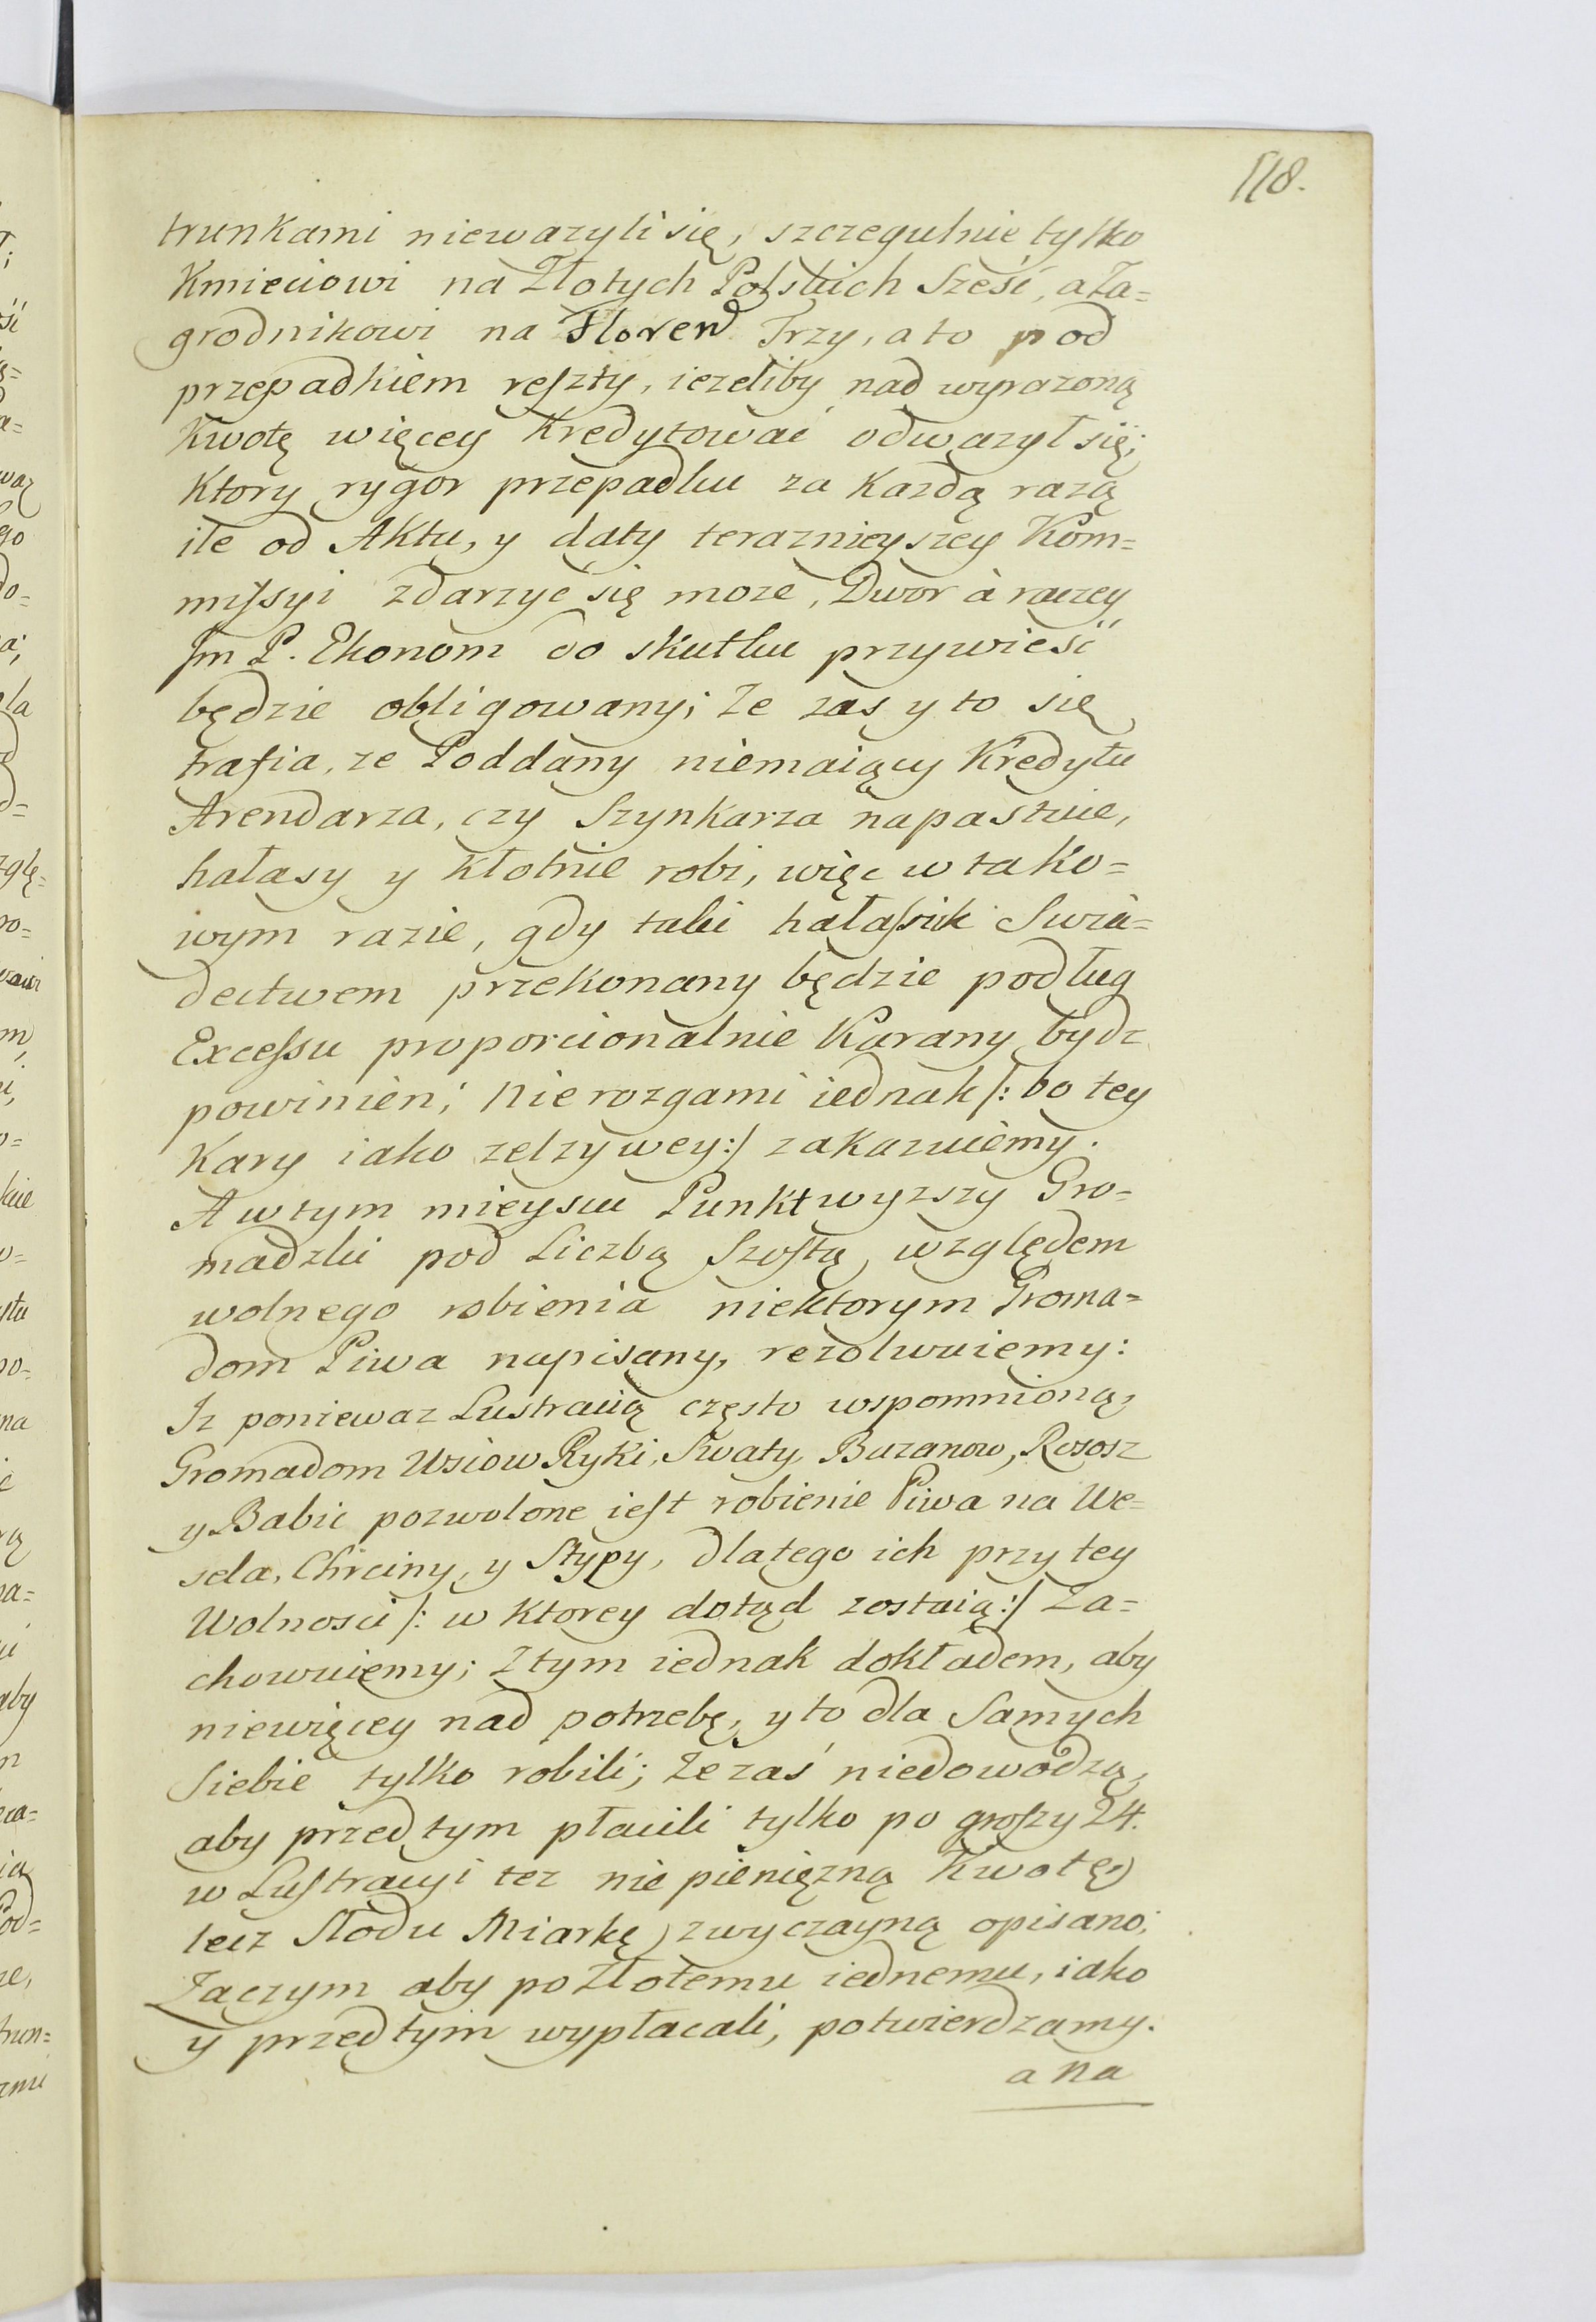 118.
trunkami niewazyli się, szczegulnie tylko
Kmieciowi na Złotych Polskich Sześć, a Za=
grodnikowi na Floren Trzy, a to pod
przepadkiem reszty, iezeliby nad wyrazoną
Kwotę więcey Kredytować odwazył się;
Ktory rygor przepadku za Kazdą razą
ile od Aktu, y daty teraznieyszey Kom=
missyi zdarzyć się moze, Dwor à raczey
Jm P. Ekonom do skutku przywieść
będzie obligowany; Ze zas y to się
trafia, ze Poddany niemaiący Kredytu
Arendarza, czy Szynkarza napastuie,
hałasy y Kłotnie robi, więc w tako=
wym razie, gdy taki hałaśnik Swia=
dectwem przekonany będzie podług
Excessu proporcionalnie Karany bydz
powinien; Nie rozgami iednak /: bo tey
Kary iako zelzywey :/ zakazuiemy.
A w tym mieyscu Punkt wyzszy Gro=
madzki pod Liczbą Szostą, względem
wolnego robienia niektorym Groma=
dom Piwa napisany, rezolwuiemy:
Iz poniewaz Lustracią często wspomnioną,
Gromadom Wsiow Ryki, Swaty, Bazanow, Rososz
y Babic pozwolone iest robienie Piwa na We=
sela, Chrciny, y Stypy, dlatego ich przy tey
Wolnosci /: w Ktorey dotąd zostaią :/ Za=
chowuiemy; Z tym iednak dokładem, aby
niewięcey nad potrzebę, y to dla Samych
Siebie tylko robili; Ze zaś niedowodzą,
aby przed tym płacili tylko po groszy 24.
w Lustracyi tez nie pienięzną Kwotę,
lecz Słodu Miarkę zwyczayną opisano;
Zaczym aby po Złotemu iednemu, iako
y przed tym wypłacali, potwierdzamy.
a na